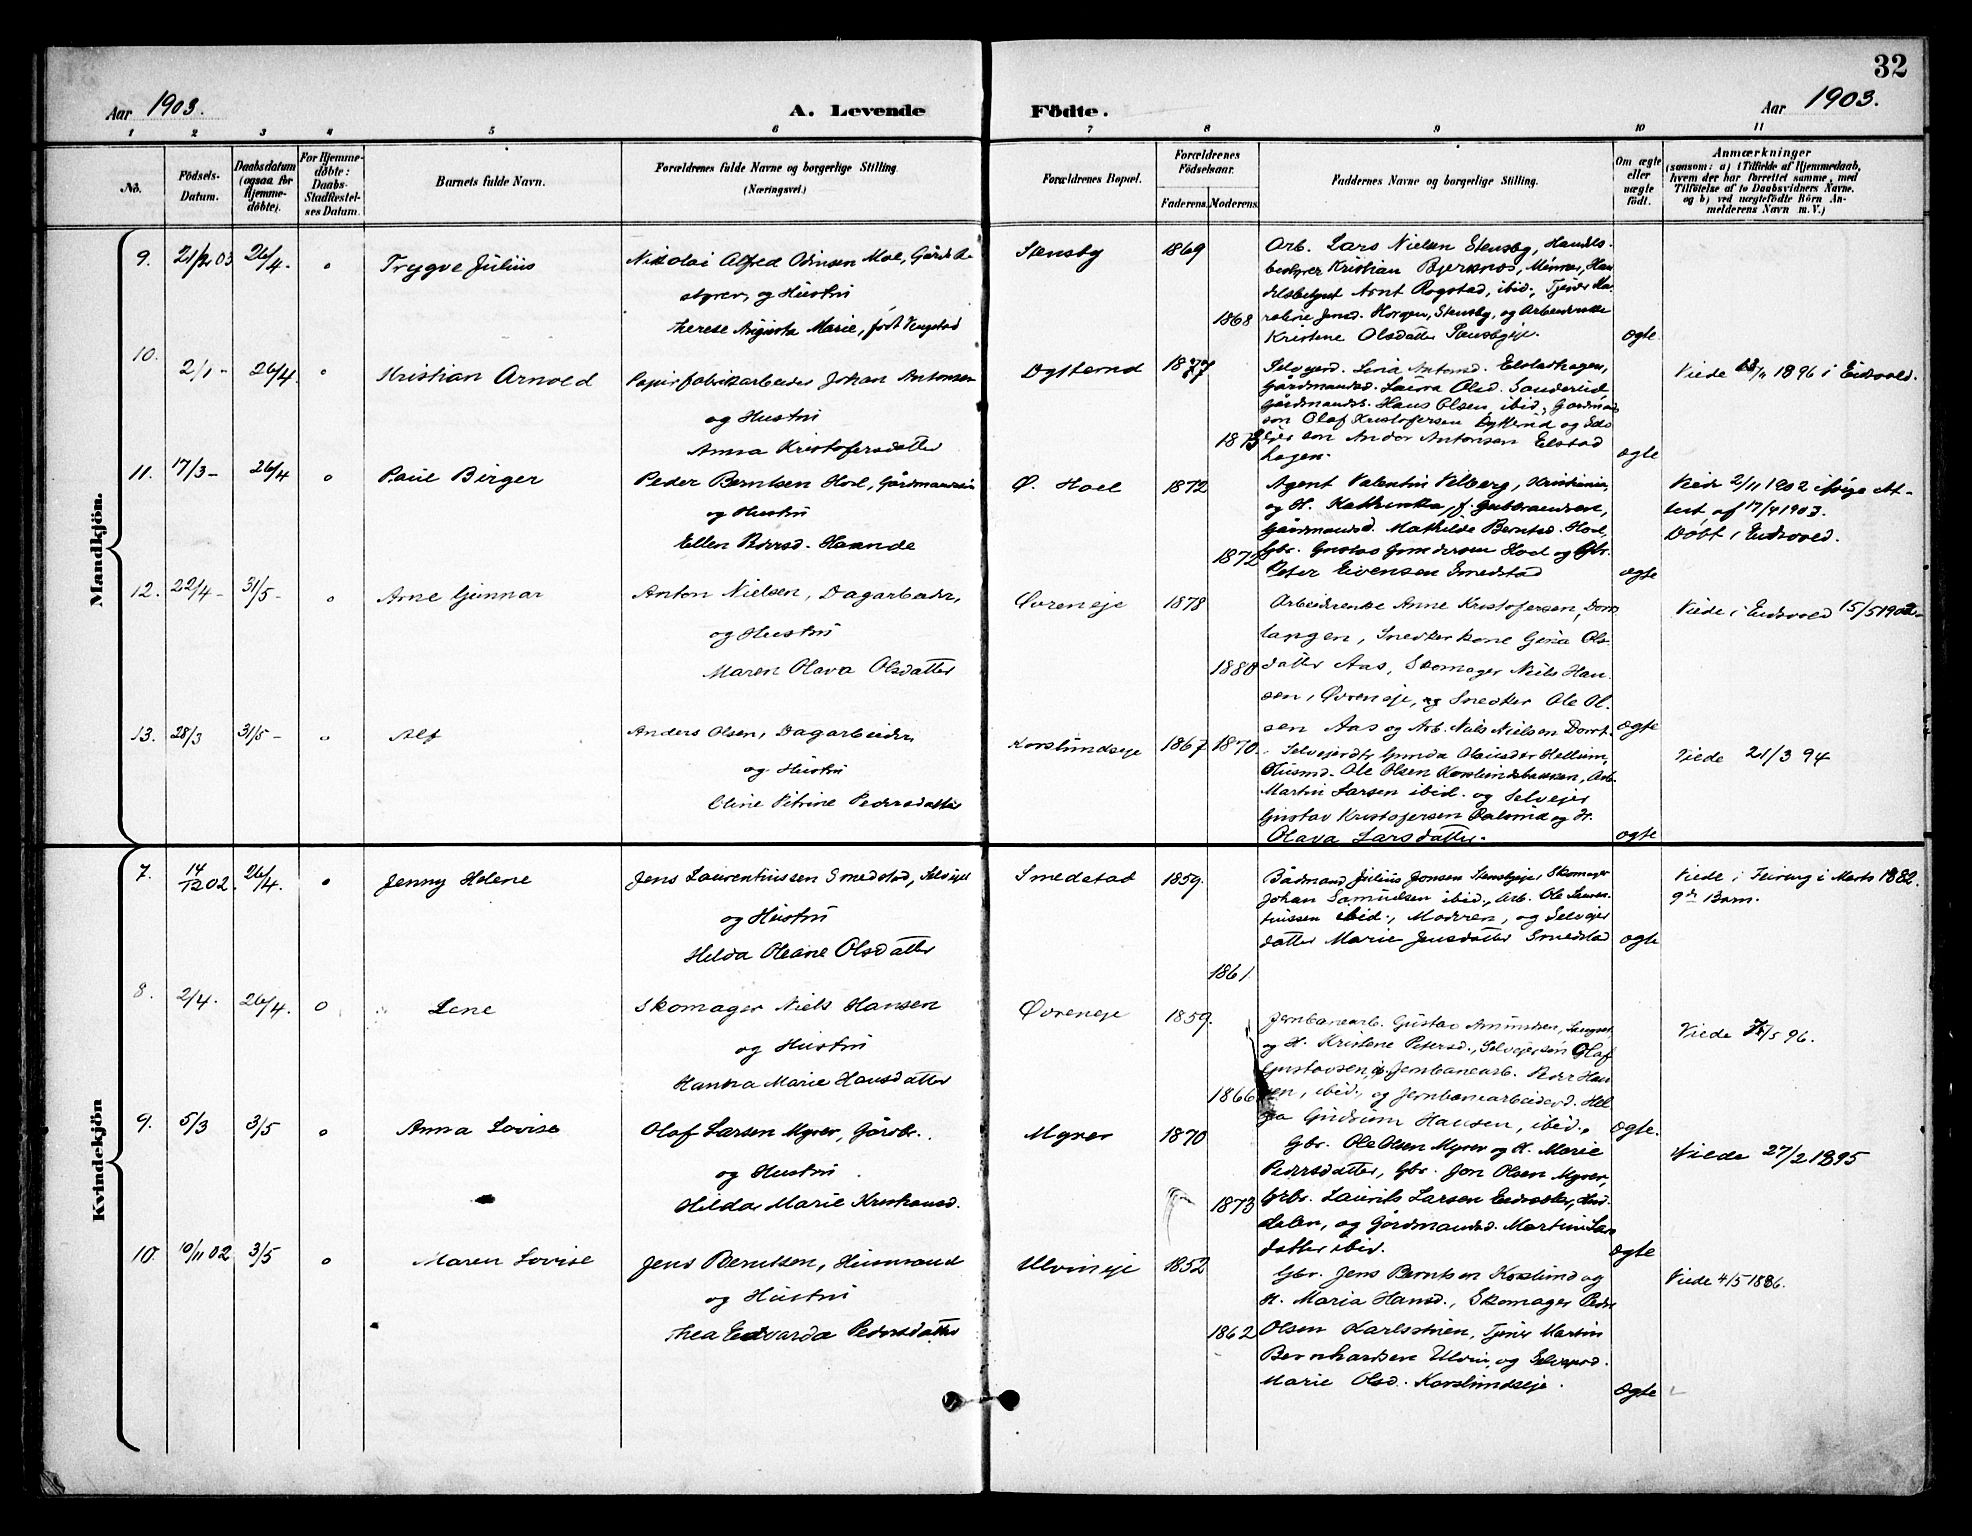 32
Aar 1903.
A. Levende
Födte.
Aar 1903.
1 2 3 4 5 6 7 8 9 10 11
No.
Födsels-
Datum.
Daabsdatum
(ogsaa for
Hjemme-
døbte).
For Hjemme-
døbte:
Daabs-
Stadfæstel-
ses Datum.
Barnets fulde Navn.
Forældrenes fulde Navne og borgerlige Stilling
(Næringsvei.)
Forældrenes Bopæl.
Forældrenes
Födselsaar.
Faderens. Moderens.
Faddernes Navne og borgerlige Stilling.
Om ægte
eller
uægte
födt.
Anmærkninger
(saasom: a) i Tilfælde af Hjemmedaab,
hvem der har forrettet samme, med
Tilföielse af to Daabsvidners Navne.
og b) ved uægtefödte Börn An-
melderens Navn m. V.)
Mandkjön.
9. 21/2 03 26/4. o Trygve Julius
Nikolai Alfred Odinsen Moe, Gårdsbe-
styrer, og Hustru
Therese Augusta Marie, født
Stensby 1869
1868
Arb. Lars Nielsen Stensby, Handels-
bestyrer Kristian Bjerknes, Minne, Han
delsbetjent Arnt Rogstad, ibid., Tjener Ka
roline Jensd. Horgen, Stensby, og Arbeiderske
Kristine Olsdatter Stensbyeje.
ægte
10. 2/1 - 26/4. o Kristian Arnold
Papirfabrikarbeider Johan Antonsen
og Hustru
Anna Kristofersdatter
1877
1873
Selvejerd. Lina Antonsd. Elstadhagen,
Gårdmandsd. Laura Olsd. Sanderud
Gårdmandss. Hans Olsen, ibid., Gårdmands
søn Olaf Kristofersen Dysterud og Selv
ejersøn Andor Antonsen Elstad
hagen.
ægte
Viede /11 1896 i Eidsvold.
11. 17/3 - 26/4 o Paul Birger
Peder Berntsen Hoel, Gårdmandssøn
og Hustru
Ellen Pedersd. Haande
Ø. Hoel 1872
1872
Agent Valentin Vilberg, Kristiania,
og H. Kathinka, f. Gulbrandsen,
Gårdmandsd. Mathilde Berntsd. Hoel,
Gbr. Gustav Gundersen Hoel og Gbr.
Peter Evensen Smedstad
ægte
Viede 2/11 1902 ifølge At-
test af 17/4 1903.
Døbt i Eidsvold.
12. 22/4 - 31/5 - o Arne Gunnar
Anton Nielsen, Dagarbeider,
og Hustru
Maren Olava Olsdatter
Øvreneje 1878
1880
Arbeiderske Anne Kristofersen, Dorr
tangen, Snedkerkone Gina Ols-
datter Aas, Skomager Niels Han-
sen, Øvreneje, og Snedker Ole Ol-
sen Aas og Arb. Niels Nielsen Dorrt.
ægte
Viede i Eidsvold 15/5 1902.
13. 28/3 31/5 - o Alf
Anders Olsen, Dagarbeider,
og Hustru
Oline Petrine Pedersdatter
Korslundseje 1867 1870.
Selvejerdt. Gunda Olausdtr Hellum,
Husmd. Ole Olsen Korslundsbakken, Arb.
Martin Larsen ibid. og Selvejer
Gustav Kristofersen Palerud og H.
Olava Larsdatter.
ægte
Viede 21/3 94
Kvindekjön
7. 14/12 02. 26/4. o Jenny Helene
Jens Laurenthiussen Smedstad, Selvejer
og Hustru
Helda Oleane Olsdatter
Smedstad 1859.
1861.
Bådmand Julius Jonsen Stensbyeje, Skomager
Johan Samuelsen ibid., Arb. Ole Lauren-
tiussen ibid., Moderen, og Selvejer
datter Marie Jensdatter Smedstad
ægte
Viede i Feiring i Marts 1882.
9de Barn.
8. 2/4. 26/4. o Lene
Skomager Niels Hansen
og Hustru
Hanna Marie Hansdatter
Øvreneje 1859.
1866
Jernbanearb. Gustav Amundsen, Langset
og H. Kristine Petersd., Selvejersøn Olaf
Gustavsen, og Jernbanearb. Peder Han
sen, ibid., og Jernbanearbeiderd. Hel-
ga Gudrun Hansen, ibid.,
ægte.
Viede /5 96.
9. 5/3 3/5 o Anna Lovise
Olaf Larsen Myrer, Gårdbr.
og Hustru
Hilda Marie Kristiansd.
Myrer 1870
1873
Gbr. Ole Olsen Myrer og H. Marie
Pedersdatter, Gbr. Jon Olsen Myrer,
Grbr. Laurits Larsen
dalen, og Gårdmandsd. Martine Lars
datter ibid.
ægte
Viede 27/2 1895
10. 10/11 02 3/5 o Maren Lovise
Jens Berntsen, Husmand
og Hustru
Thea Edvarda Pedersdatter
Ulvineje 1852
1862
Gbr. Jens Berntsen Korslund og
H. Maria Hansd., Skomager Peder
Olsen Karlsstuen, Tjener Martin
Bernhardsen Ulvin, og Selvejerd.
Marie Olsd. Korslundseje.
ægte
Viede 4/5 1886.